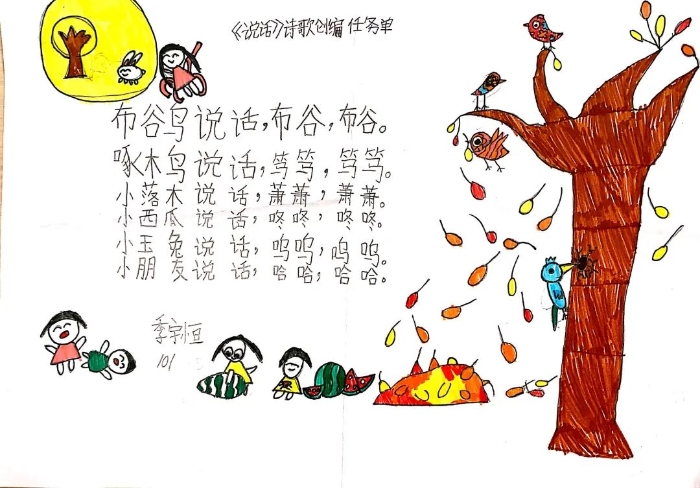 《说话》诗歌创编 任务单
布谷鸟说话,布谷,布谷。
啄木鸟说话,笃笃,笃笃。
小落木说话,萧萧,萧萧。
小西瓜说话,咚咚,咚咚。
小玉兔说话,呜呜,呜呜。
小朋友说话,哈哈,哈哈。
季宇恒
101